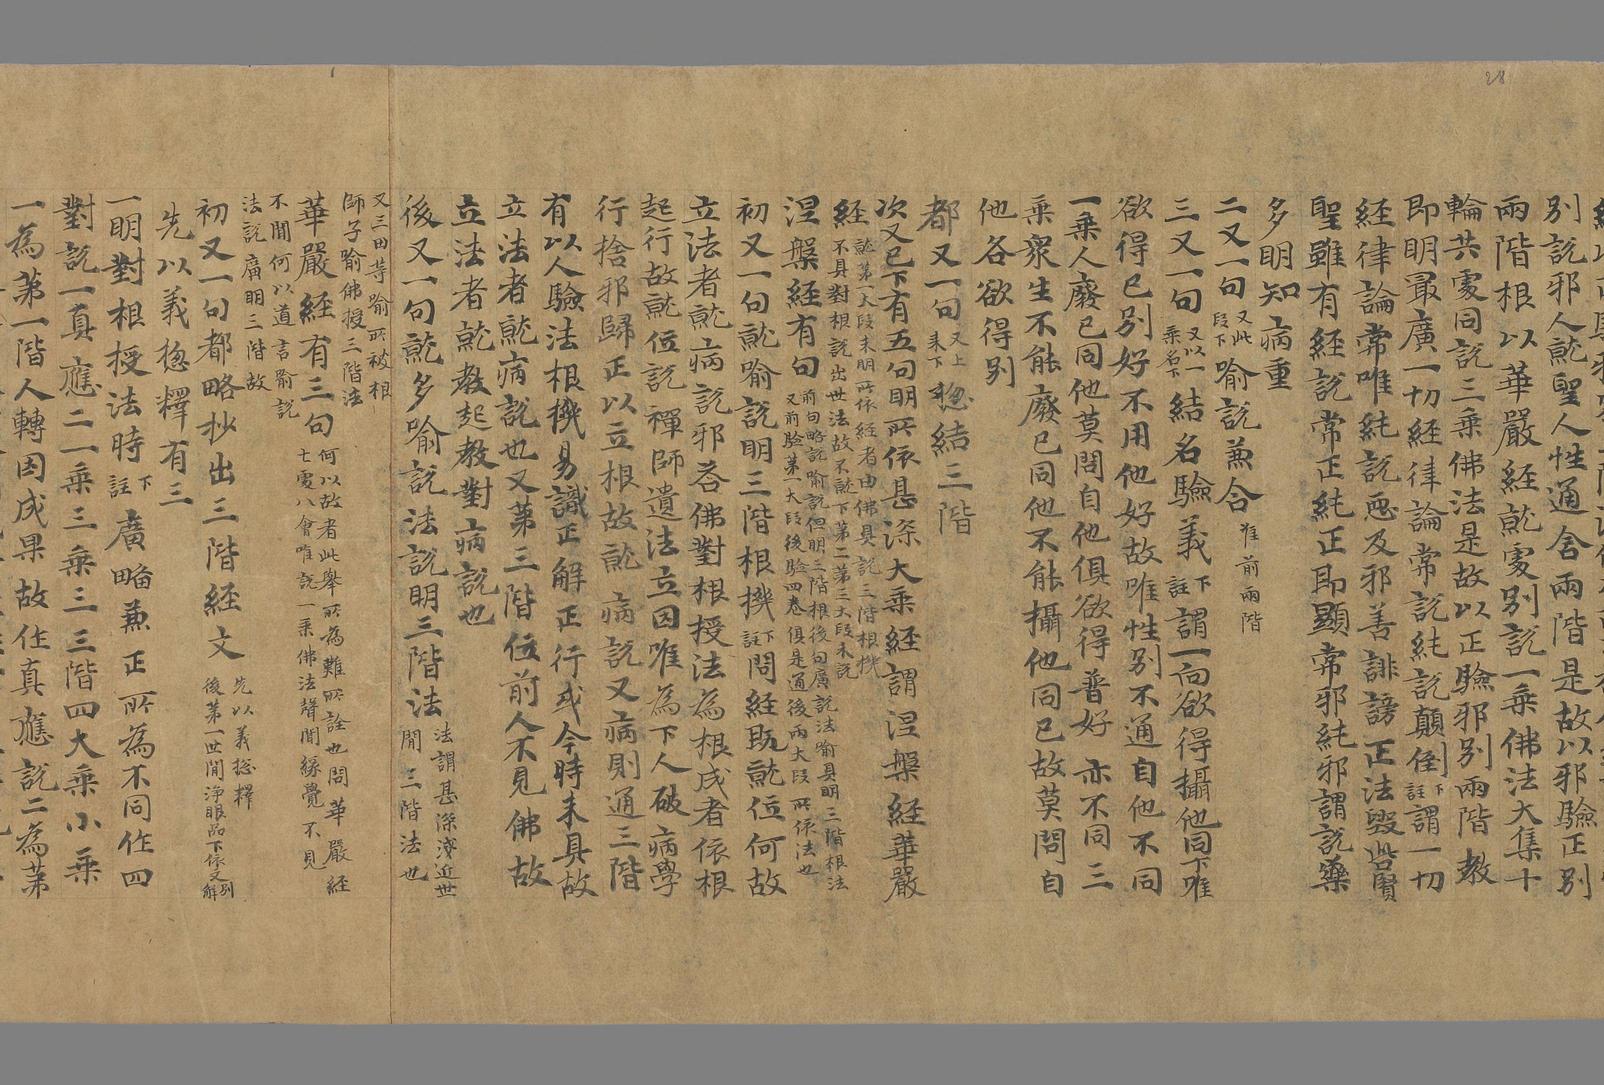 別說邪人就聖人性通含兩階是故以邪驗正別
兩階根以華嚴經就處別說一乘佛法大集十
輪共處同說三乘佛法是故以正驗邪別兩階教
即明最廣一切經律論常說純說顛倒下註謂一切
經律論常唯純說惡及邪善誹謗正法毀呰賢
聖雖有經說常正純正即顯常邪純邪謂說藥
多明知病重
二又一句又此段下喻說兼合准前兩階
三又一句又以一乘名下結名驗義下註謂一向欲得攝他同下唯
欲得已別好不用他好故唯性別不通自他不同
一乘人廢已同他莫問自他俱欲得普好亦不同三
乘衆生不能廢已同他不能攝他同已故莫問自
他各欲得別
都又一句又上來下惣結三階
次又已下有五句明所依甚深大乘經謂涅槃經華嚴
經就第一大段末明所依經者由佛具說三階根機
不具對根說出世法故不就下第二第三大段末說
涅槃經有句前句略說喻說但明三階根後句廣說法喻具明三階根法
又前驗第一大段後驗四卷俱是通後兩大段所依法也
初又一句就喻說明三階根機下註問經既就位何故
立法者就病說邪答佛對根授法為根成者依根
起行故就位說禪師遺法立因唯為下人破病學
行捨邪歸正以立根故就病說又病則通三階
有以人驗法根機易識正解正行或今時未具故
立法者就病說也又第三階位前人不見佛故
立法者就教起教對病說也
後又一句就多喻說法說明三階法法謂甚深淺近世
間三階法也
又三田等喻所被根
師子喻佛授三階法
華嚴經有三句何以故者此舉所為難所詮也問華嚴經
七處八會唯說一乘佛法聲聞緣覺不見
不聞何以道言喻說
法說廣明三階故
初又一句都略抄出三階經文先以義惣釋
後第一世間淨眼品下依文別解
先以義惣釋有三
一明對根授法時下註廣略兼正所為不同作四
對說一真應二一乘三乘三三階四大乘小乘
一為第一階人轉因成果故作真應說二為第